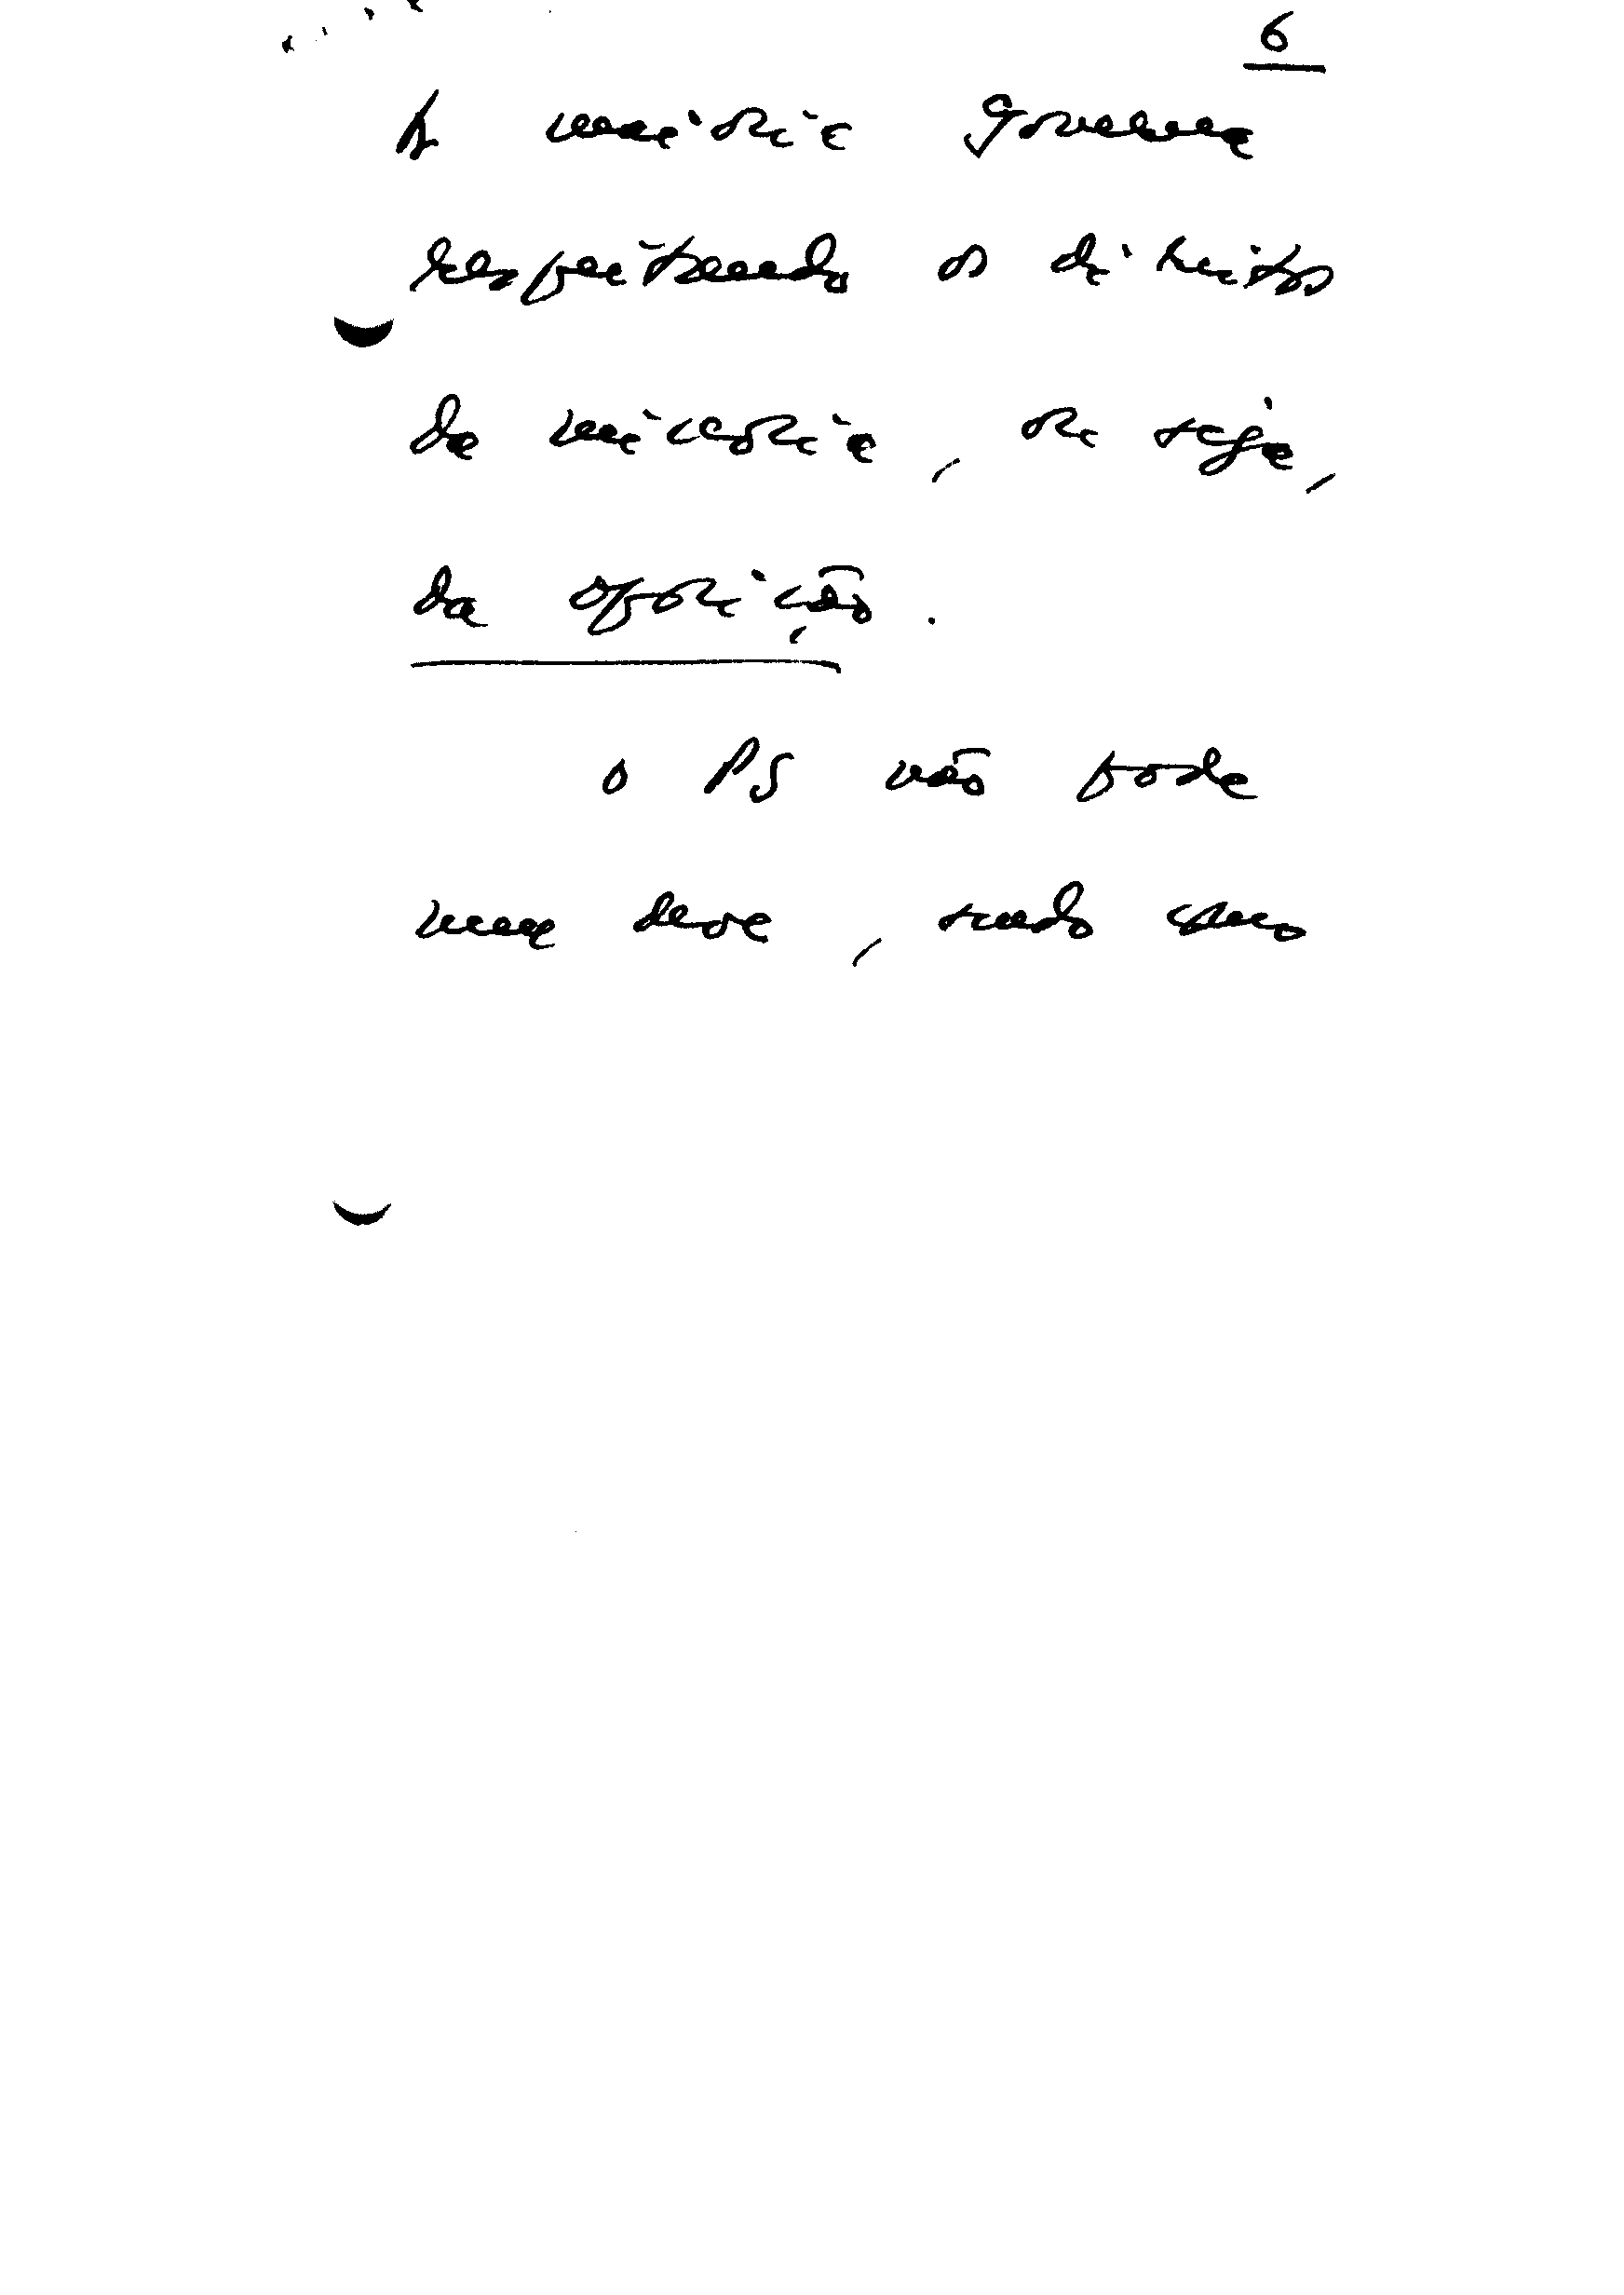 6
A maioria governa
respeitando os direitos
da minoria, ou seja,
da oposição.
o PS não pode
nem deve, sendo como